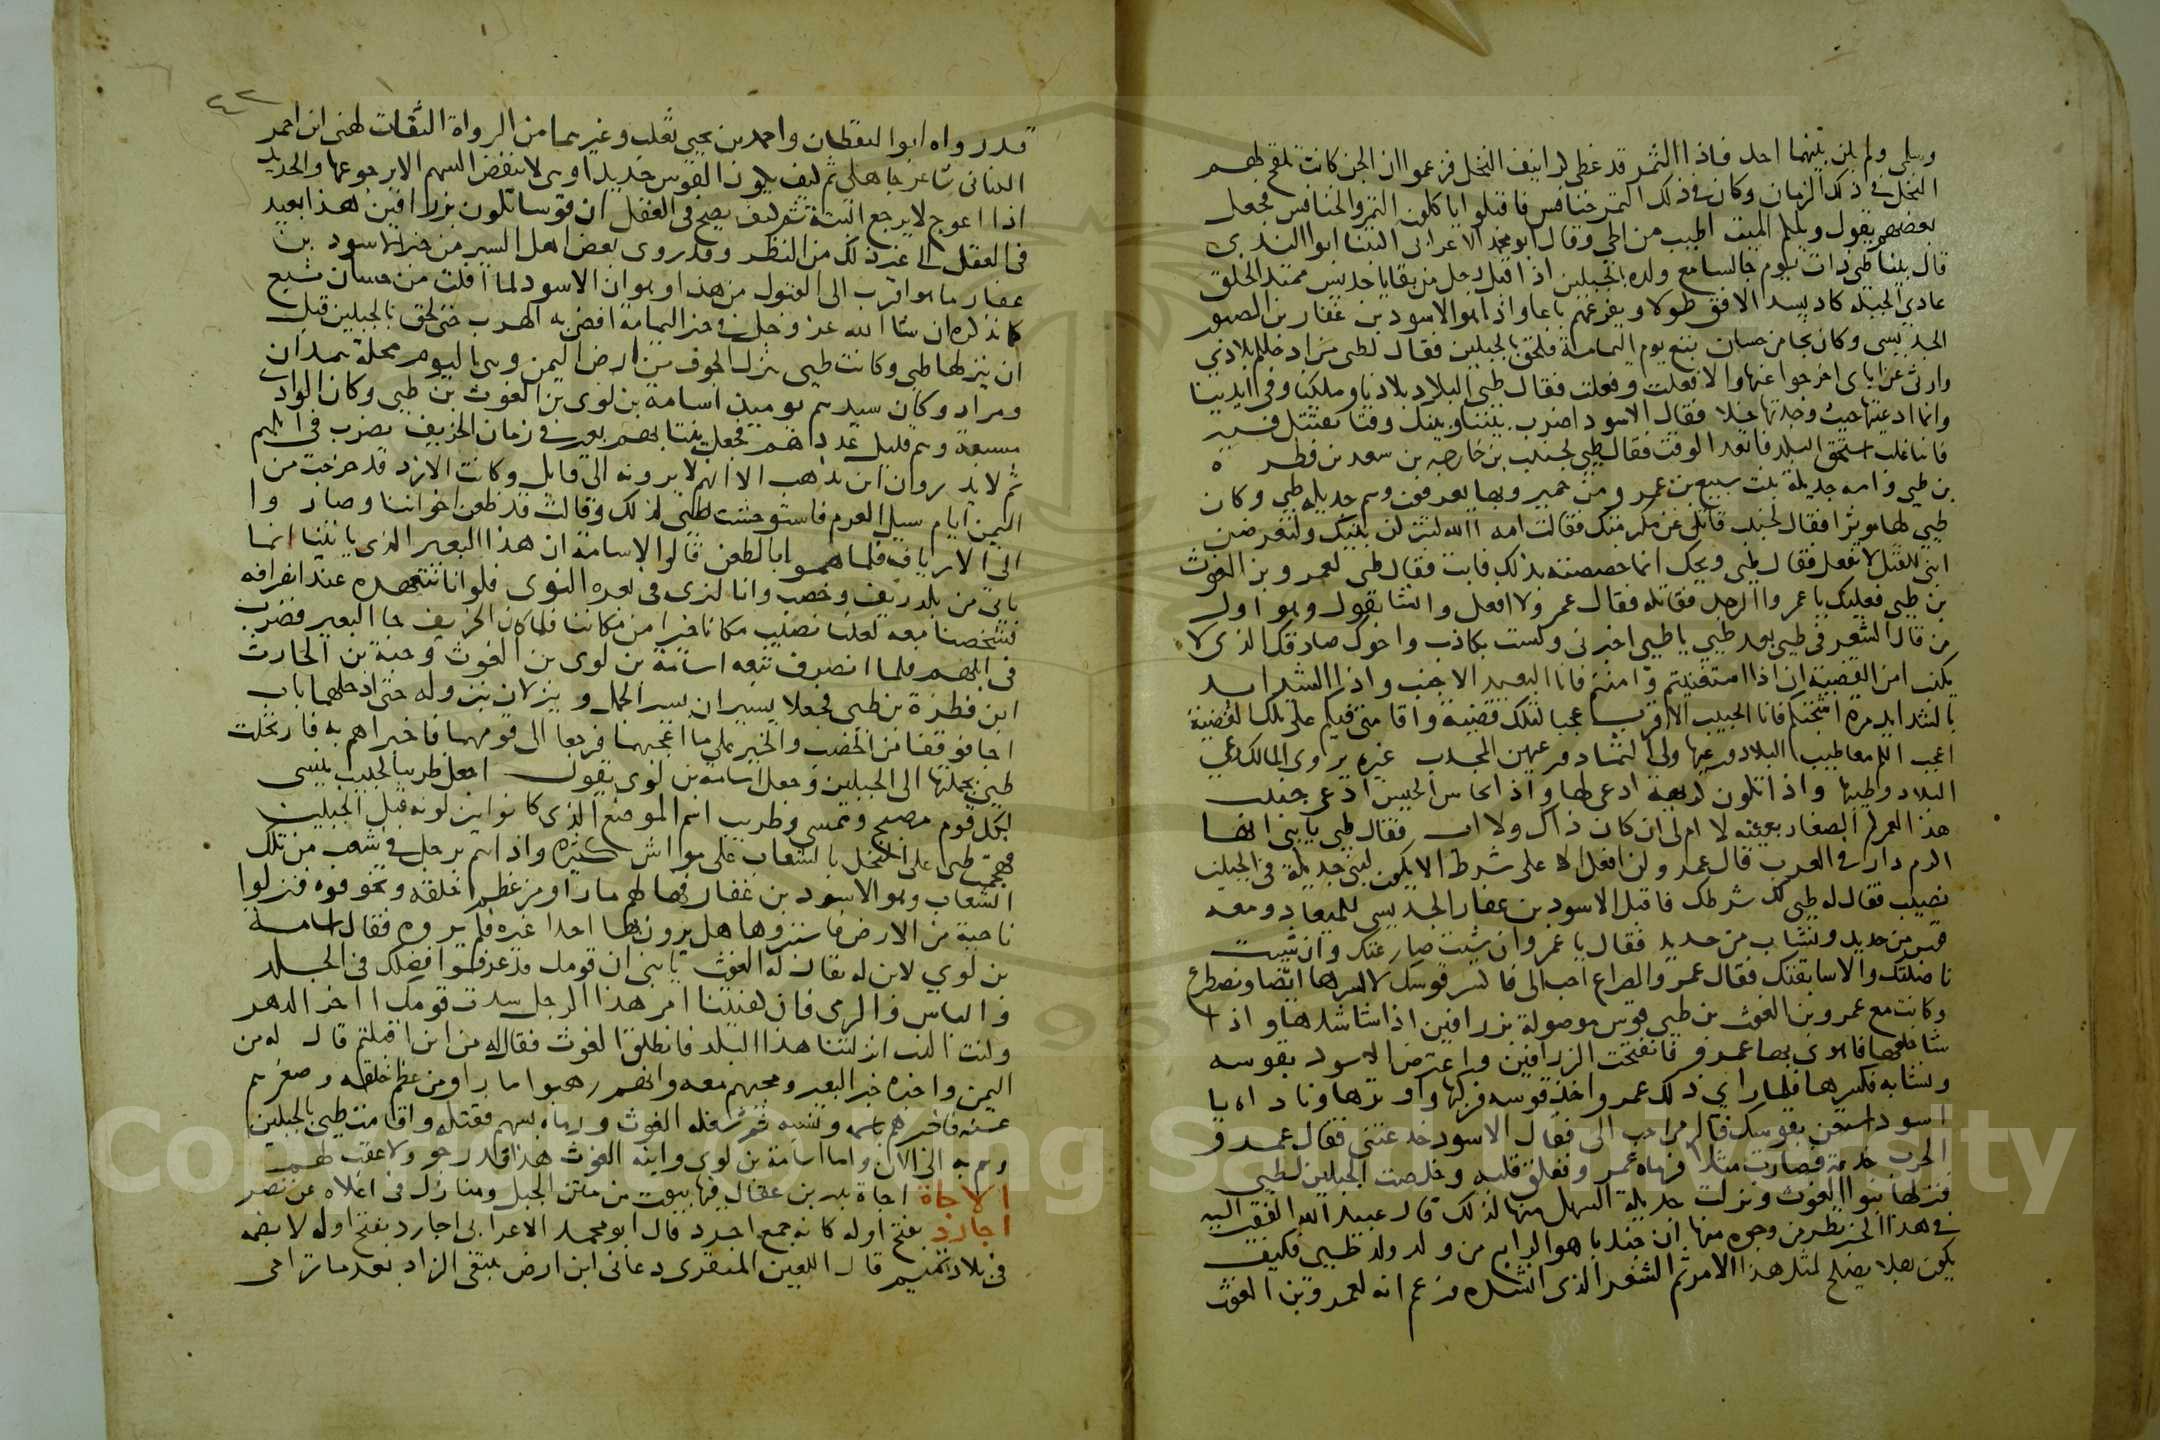 وسلمى ولم يكن بينهما احد فاذا التمر قد غطى كرانيف النخل فزعموا ان الجن كانت تلقح لهم
النخل في ذلك الزمان وكان في ذلك التمر خنافس فاقبلوا ياكلون التمر والخنافس فجعل
بعضهم يقول ويلكم الميت اطيب من الحي وقال ابو محمد الاعرابي اكتبنا ابو الندى
قال بينا طي ذات يوم جالسا مع ولده بالجبلين اذ اقبل رجل من بقايا جديس ممتد الخلق
عادي الجبلة كاد يسد الافق طولا ويفرعهم باعا واذا هو الاسود بن غفار بن الصبور
الجديسي وكان نجا من حسان تبع يوم اليمامة فلحق بالجبلين فقال لطي من ادخلكم بلادي
وارثي عن اباي اخرجوا عنها والا فعلت وفعلت فقال طي البلاد بلادنا وملكنا وفي ايدينا
وانما ادعيتها حيث وجدتها خلا فقال الاسود اضرب بيننا وبينك وقتا نقتتل فيه
فاينا غلب استحق البلد فاتعد الوقت فقال طي لجندب بن خارجة بن سعد بن فطرة
بن طي وامه جديلة بنت سبيع بن عمرو من حمير وبها يعرفون وهم جديلة طي وكان
طي لها موثرا فقال لجندب قاتل عن مكرمتك فقالت امه الله لتتركن بنيك ولتعرضن
ابني للقتل لا تفعل فقال طي ويحك انما خصصته بذلك فابت فقال طي لعمرو بن الغوث
بن طي فعليك يا عمرو الرجل فقاتله فقال عمرو لا افعل وانشا يقول وهو اول
من قال الشعر في طي بعد طي يا طي اخبرني ولست بكاذب واخوك صادقك الذي لا
يكذب امن القضية ان اذا استغنيتم وامنتم فانا البعيد الاجنب واذا الشدايد
بالشدايد مرة اشجتكم فانا الحبيب الاقرب عجبا لتلك قضية واقامتي فيكم على تلك القضية
اعجب الكم معا طيب البلاد ورعيها ولي الثماد ورعيهن المجدب غيره يروى المالكم رعي
البلاد وطيبها واذا تكون كريهة ادعى لها واذا يحاس الحيس يدعى جندب
هذا لعمركم الصغار بعينه لا ام لي ان كان ذاك ولا اب فقال طي يا بني انها
اكرم دار في العرب قال عمرو لن افعل الا على شرط الا يكون لبني جديلة في الجبلين
نصيب فقال له طي لك شرطك فاقبل الاسود بن غفار الجديسي للميعاد ومعه
قوس من حديد ونشاب من حديد فقال يا عمرو ان شيت صارعتك وان شيت
ناضلتك والا سايفتك فقال عمرو الصراع احب الى فاكسر قوسك لاكسرها ايضا ونصطرع
وكانت مع عمرو بن الغوث بن طي قوس موصولة بزرافين اذا شا شدها واذا
شا خلعها فاهوى بها عمرو فانفتحت الزرافين واعترض الاسود بقوسه
ونشابه فكسرها فلما راى ذلك عمرو اخذ قوسه فركبها واوترها وناداه يا
اسود استعن بقوسك فالرمي احب الى فقال الاسود خدعتني فقال عمرو
الحرب خدعة فصارت مثلا فرماه عمرو ففلق قلبه وخلصت الجبلين لطي
فنزلها بنوا الغوث ونزلت جديلة السهل منها لذلك قال عبيد الله الفقير اليه
في هذا الخبر نظر من وجوه منها ان جندبا هو الرابع من ولد ولد طي فكيف
يكون رجلا يصلح لمثل هذا الامر ثم الشعر الذي انشده وزعم انه لعمرو بن الغوث
٤٢
قد رواه ابو اليقظان واحمد بن يحيى ثعلب وغيرهما من الرواة الثقات لهني ابن احمر
الكناني شاعر جاهلي ثم كيف يكون القوس حديدا وهى لا تنفض السهم الا برجوعها والحديد
اذا اعوج لا يرجع البتة ثم كيف يصح في العقل ان قوسا تكون بزرافين هذا بعيد
في العقل الى غير ذلك من النظر وقد روى بعض اهل السير من خبر الاسود بن
غفار ما هو اقرب الى القبول من هذا وهو ان الاسود لما افلت من حسان تبع
كما نذكره ان شا الله عز وجل في خبر اليمامة افضى به الهرب حتى لحق بالجبلين قبل
ان ينزلها طي وكانت طي تنزل الجوف من ارض اليمن وهى اليوم محلة همدان
ومراد وكان سيدهم يومين اسامة بن لوى بن الغوث بن طي وكان الوادي
مسبعة وهم قليل عددهم فجعل ينتابهم بعير في زمان الخريف يضرب في ابلهم
ثم لا يدرون اين يذهب الا انهم لا يرونه الى قابل وكانت الازد قد خرجت من
اليمن ايام سيل العرم فاستوحشت طي لذلك وقالت قد ظعن اخواننا وصاروا
الى الارياف فلما هموا بالظعن قالوا لاسامة ان هذا البعير الذي ياتينا انما
ياتي من بلد ريف وخصب وانا لنرى في بعره النوى فلو انا نتعهده عند انصرافه
فشخصنا معه لعلنا نصيب مكانا خيرا من مكاننا فلما كان الخريف جا البعير فضرب
في ابلهم فلما انصرف تبعه اسامة بن لوى بن الغوث وحبة بن الحارث
ابن فطرة بن طي فجعلا يسيران بسير الجمل وينزلان بنزوله حتى ادخلهما باب
اجا فوقفا من الخصب والخير على ما اعجبهما فرجعا الى قومهما فاخبراهم به فارتحلت
طي بجملتها الى الجبلين وجعل اسامة بن لوى يقول اجعل ظريبا كحبيب ينسى
لكل قوم مصبح وممسى وظريب اسم الموضع الذي كانوا ينزلونه قبل الجبلين
فهجمت طي على النخل بالشعاب على مواش كثيرة واذا هم برجل في شعب من تلك
الشعاب وهو الاسود بن غفار فهالهم ما راو من عظم خلقه وتخوفوه فنزلوا
ناحية من الارض فاستبروها هل يرون بها احدا غيره فلم يروه فقال اسامة
بن لوي لابن له يقال له الغوث يا بني ان قومك قد عرفوا فضلك في الجلد
والباس والرمي فان كفيتنا امر هذا الرجل سدت قومك اخر الدهر
وكنت الذي انزلتنا هذا البلد فانطلق الغوث فقال له من اين اقبلتم قال له من
اليمن واخبره خبر البعير ومجيهم معه وانهم رهبوا ما راو من عظم خلقه وصغرهم
عنه فاخبرهم باسمه ونسبه ثم شغله الغوث ورماه بسهم فقتله واقامت طي بالجبلين
وهم به الى الان واما اسامة بن لوى وابنه الغوث هذا فدرجو ولا عقب لهم
الاجاة اجاة بدر بن عقال فيها بيوت من متن الجبل ومنازل في اعلاه عن نصر
اجارد بفتح اوله كانه جمع اجرد قال ابو محمد الاعرابى اجارد بفتح اوله لا بضمه
في بلاد تميم قال اللعين المنقري دعاني ابن ارض يبتغى الزاد بعد ما ترامى